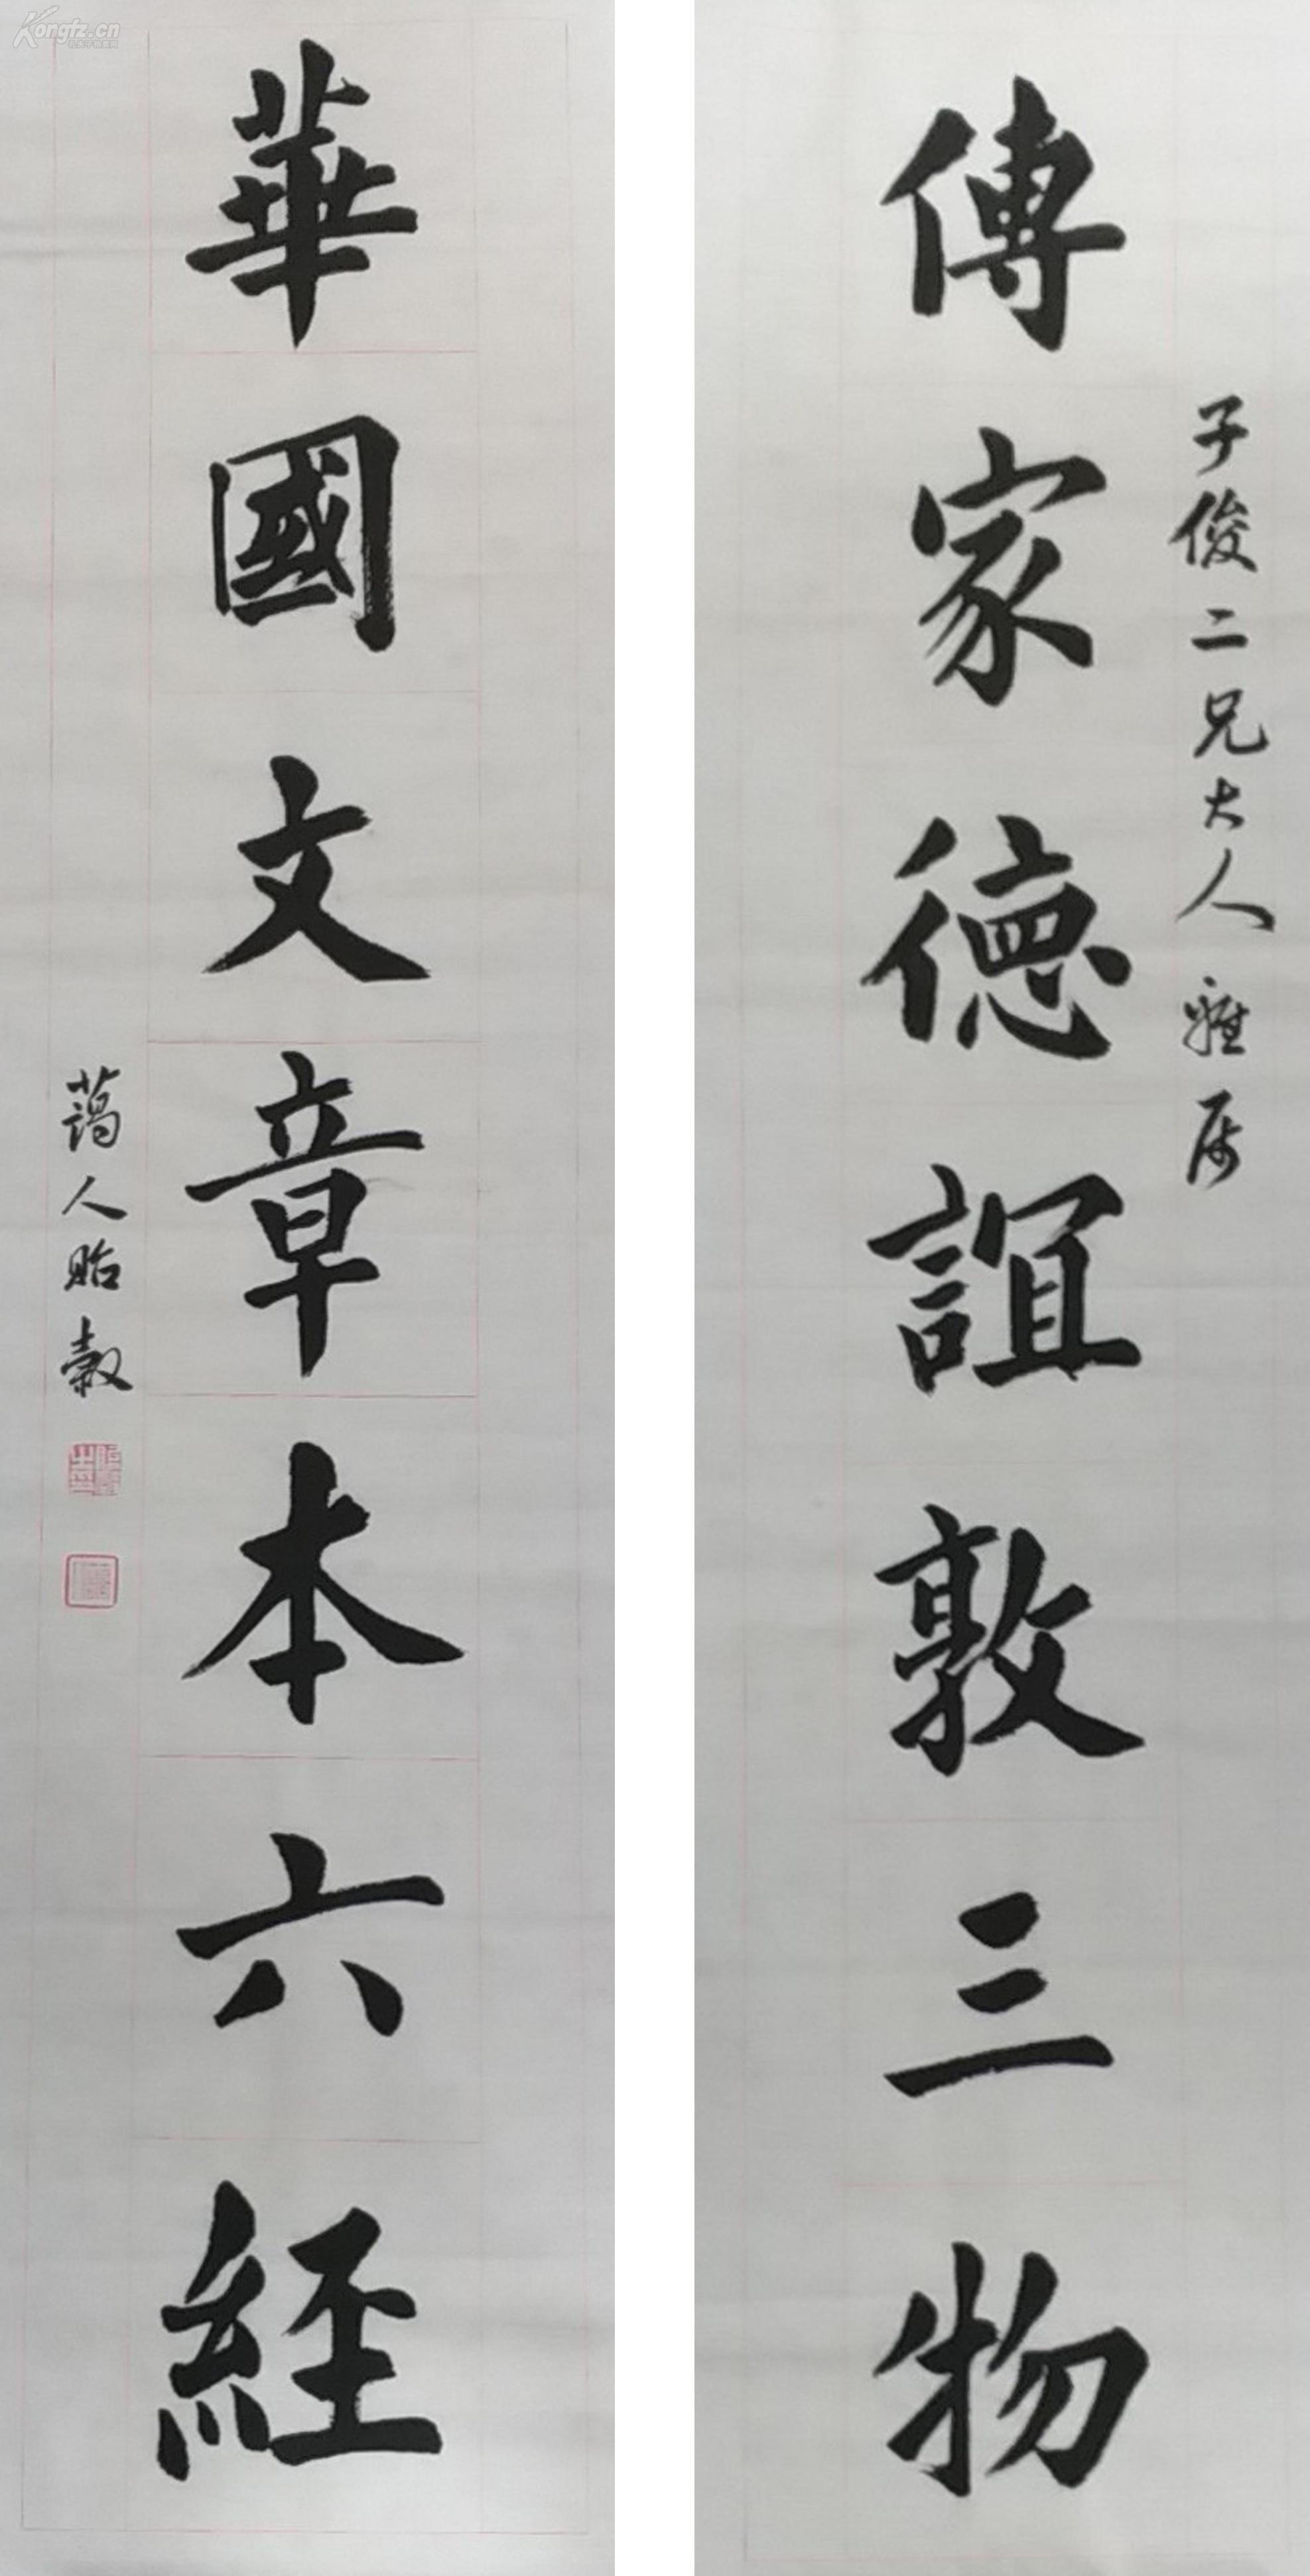 傳家德誼敦三物
子俊二兄大人雅屬
華國文章本六經
藹人貽穀
Kongfz.cn